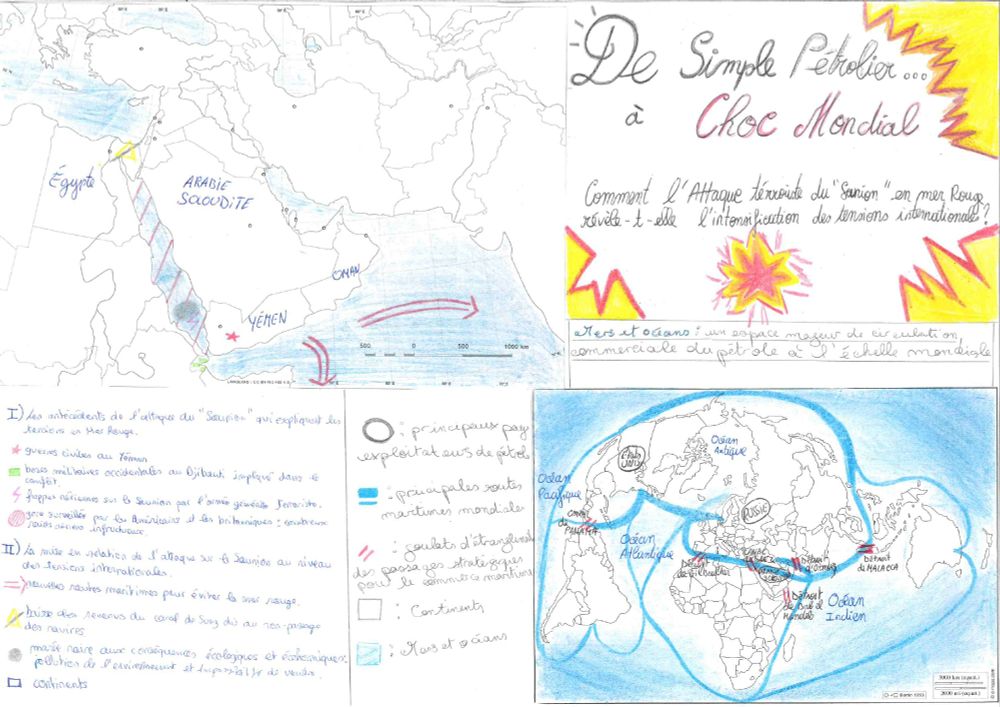 De Simple Pétrolier...
à Choc Mondial
Comment l'Attaque terroriste du "Sounion" en mer Rouge
révèle-t-elle l'intensification des tensions internationales?
Mers et océans : un espace majeur de circulation
commerciale du pétrole à l'échelle mondiale
Égypte
ARABIE
SAOUDITE
OMAN
YÉMEN
500
0
500
1000 km
I) Les antécédents de l'attaque du "Sounion" qui expliquent les
tensions en Mer Rouge.
guerres civiles au Yémen
bases militaires occidentales au Djibouti impliqué dans le
conflit.
frappes aériennes sur le Sounion par l'armée
zone surveillée par les Américains et les britanniques : nombreux
raids aériens infructueux.
II) La mise en relation de l'attaque sur le Sounion au niveau
des tensions internationales.
nouvelles routes maritimes pour éviter la mer rouge.
baisse des revenus du canal de Suez dû au non-passage
des navires
marée noire aux conséquences écologiques et économiques:
pollution de l'environnement et
continents
: principaux pays
exploitateurs de pétrole
: principales routes
maritimes mondiales
: goulets d'étranglement
des passages stratégiques
pour le commerce maritime
: Continents
: Mers et océans
Océan
Arctique
États
UNIS
Océan
Pacifique
RUSSIE
Canal
de PANAMA
Océan
Atlantique
Détroit
de Gibraltar
CANAL
Détroit
d'Ormuz
Détroit
de MALACCA
Détroit
de Bab el
Mandeb
Océan
Indien
3000 km (équat.)
2000 mi (équat.)